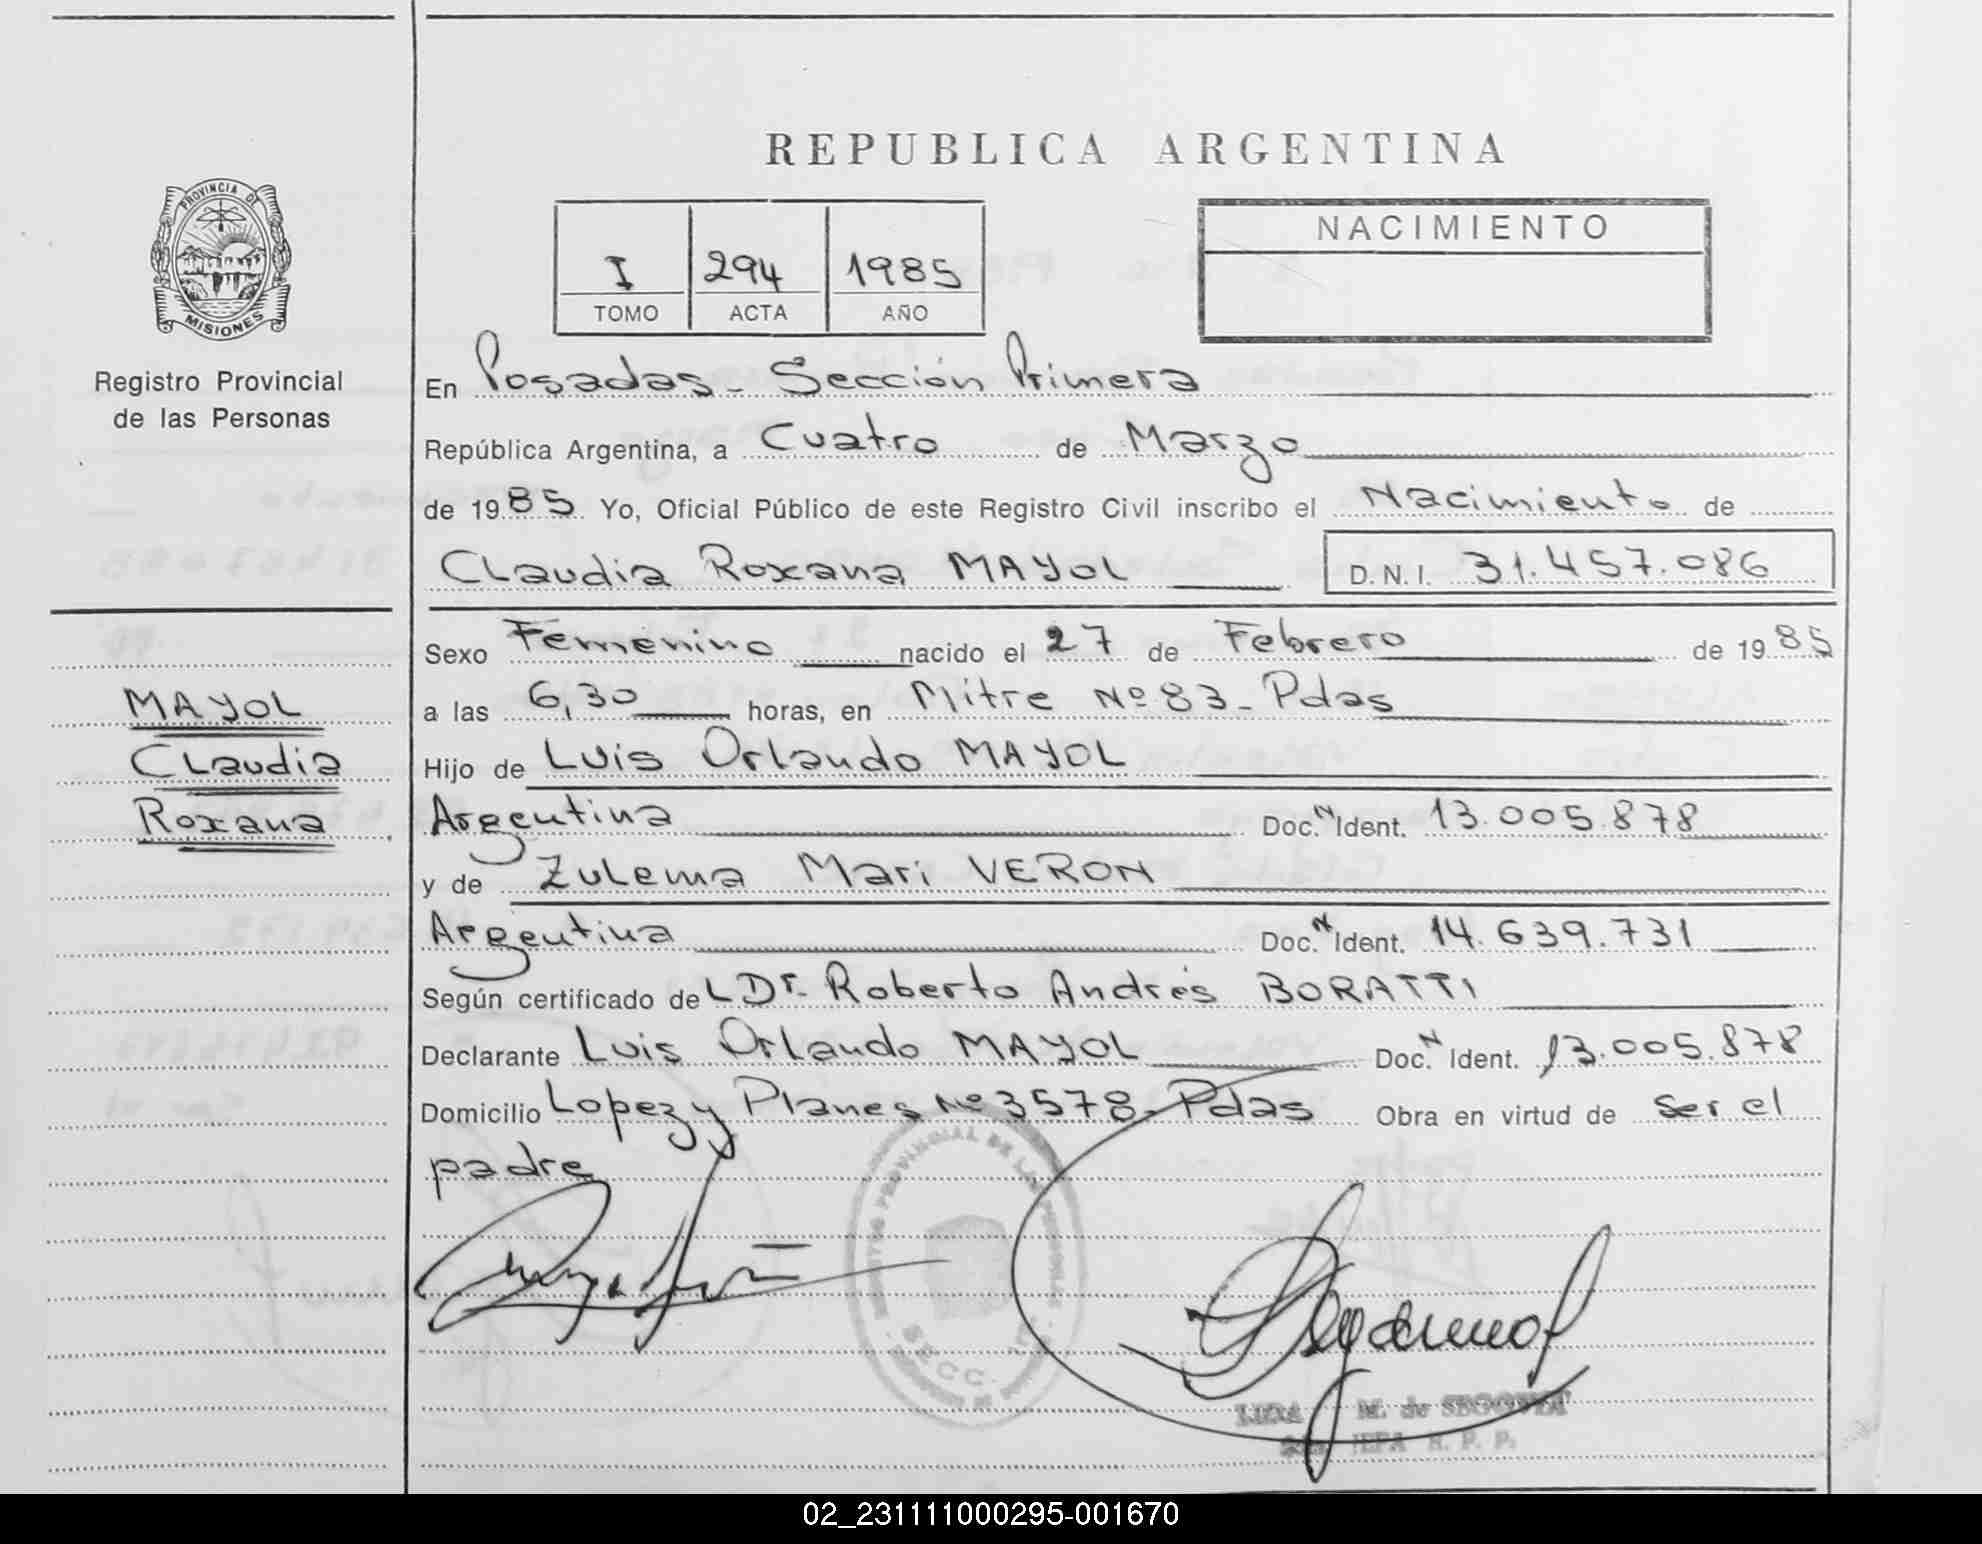 REPUBLICA ARGENTINA
PROVINCIA DE
MISIONES
Registro Provincial
de las Personas
I 294 1985
TOMO ACTA AÑO
NACIMIENTO
En Posadas - Sección Primera
República Argentina, a Cuatro de Marzo
de 1985 Yo, Oficial Público de este Registro Civil inscribo el Nacimiento de
Claudia Roxana MAYOL D.N.I. 31.457.086
MAYOL
Claudia
Roxana
Sexo Femenino nacido el 27 de Febrero de 1985
a las 6,30 horas, en Mitre Nº 83 - Pdas
Hijo de Luis Orlando MAYOL
Argentina Doc. N Ident. 13.005.878
y de Zulema Mari VERON
Argentina Doc. N Ident. 14.639.731
Según certificado del Dr. Roberto Andrés BORATTI
Declarante Luis Orlando MAYOL Doc. N Ident. 13.005.878
Domicilio Lopez y Planes Nº 3578 - Pdas Obra en virtud de ser el
padre
REGISTRO PROVINCIAL DE LAS PERSONAS
SECC.
M. de SEGOVIA
R. P. P.
02_231111000295-001670